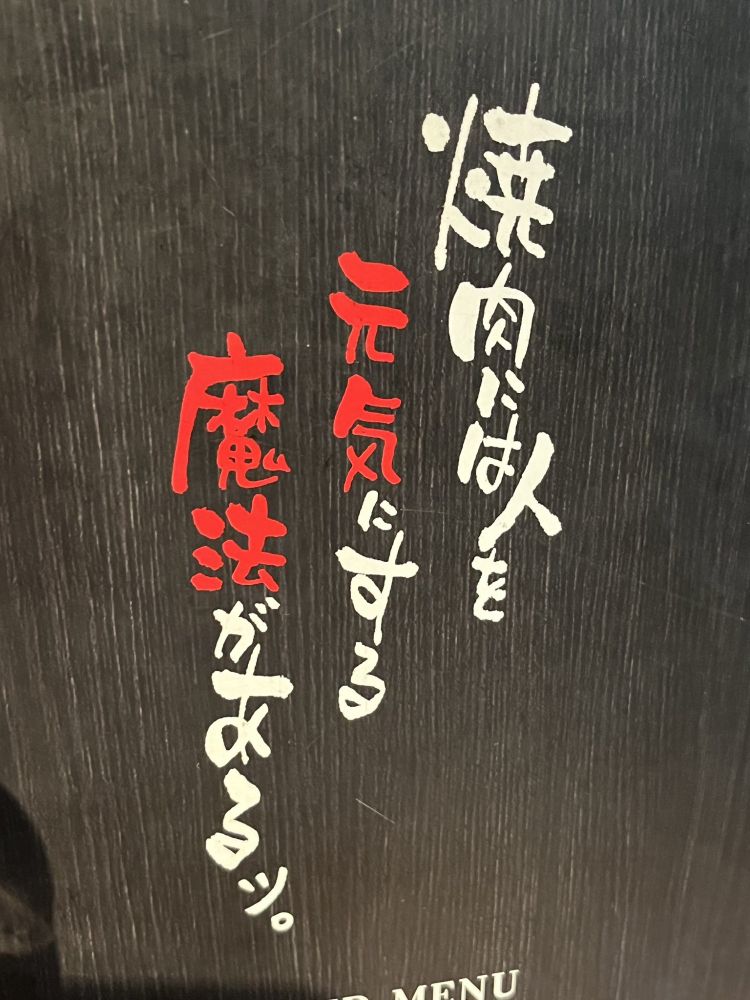 焼肉には人を
元気にする
魔法があるッ。
MENU